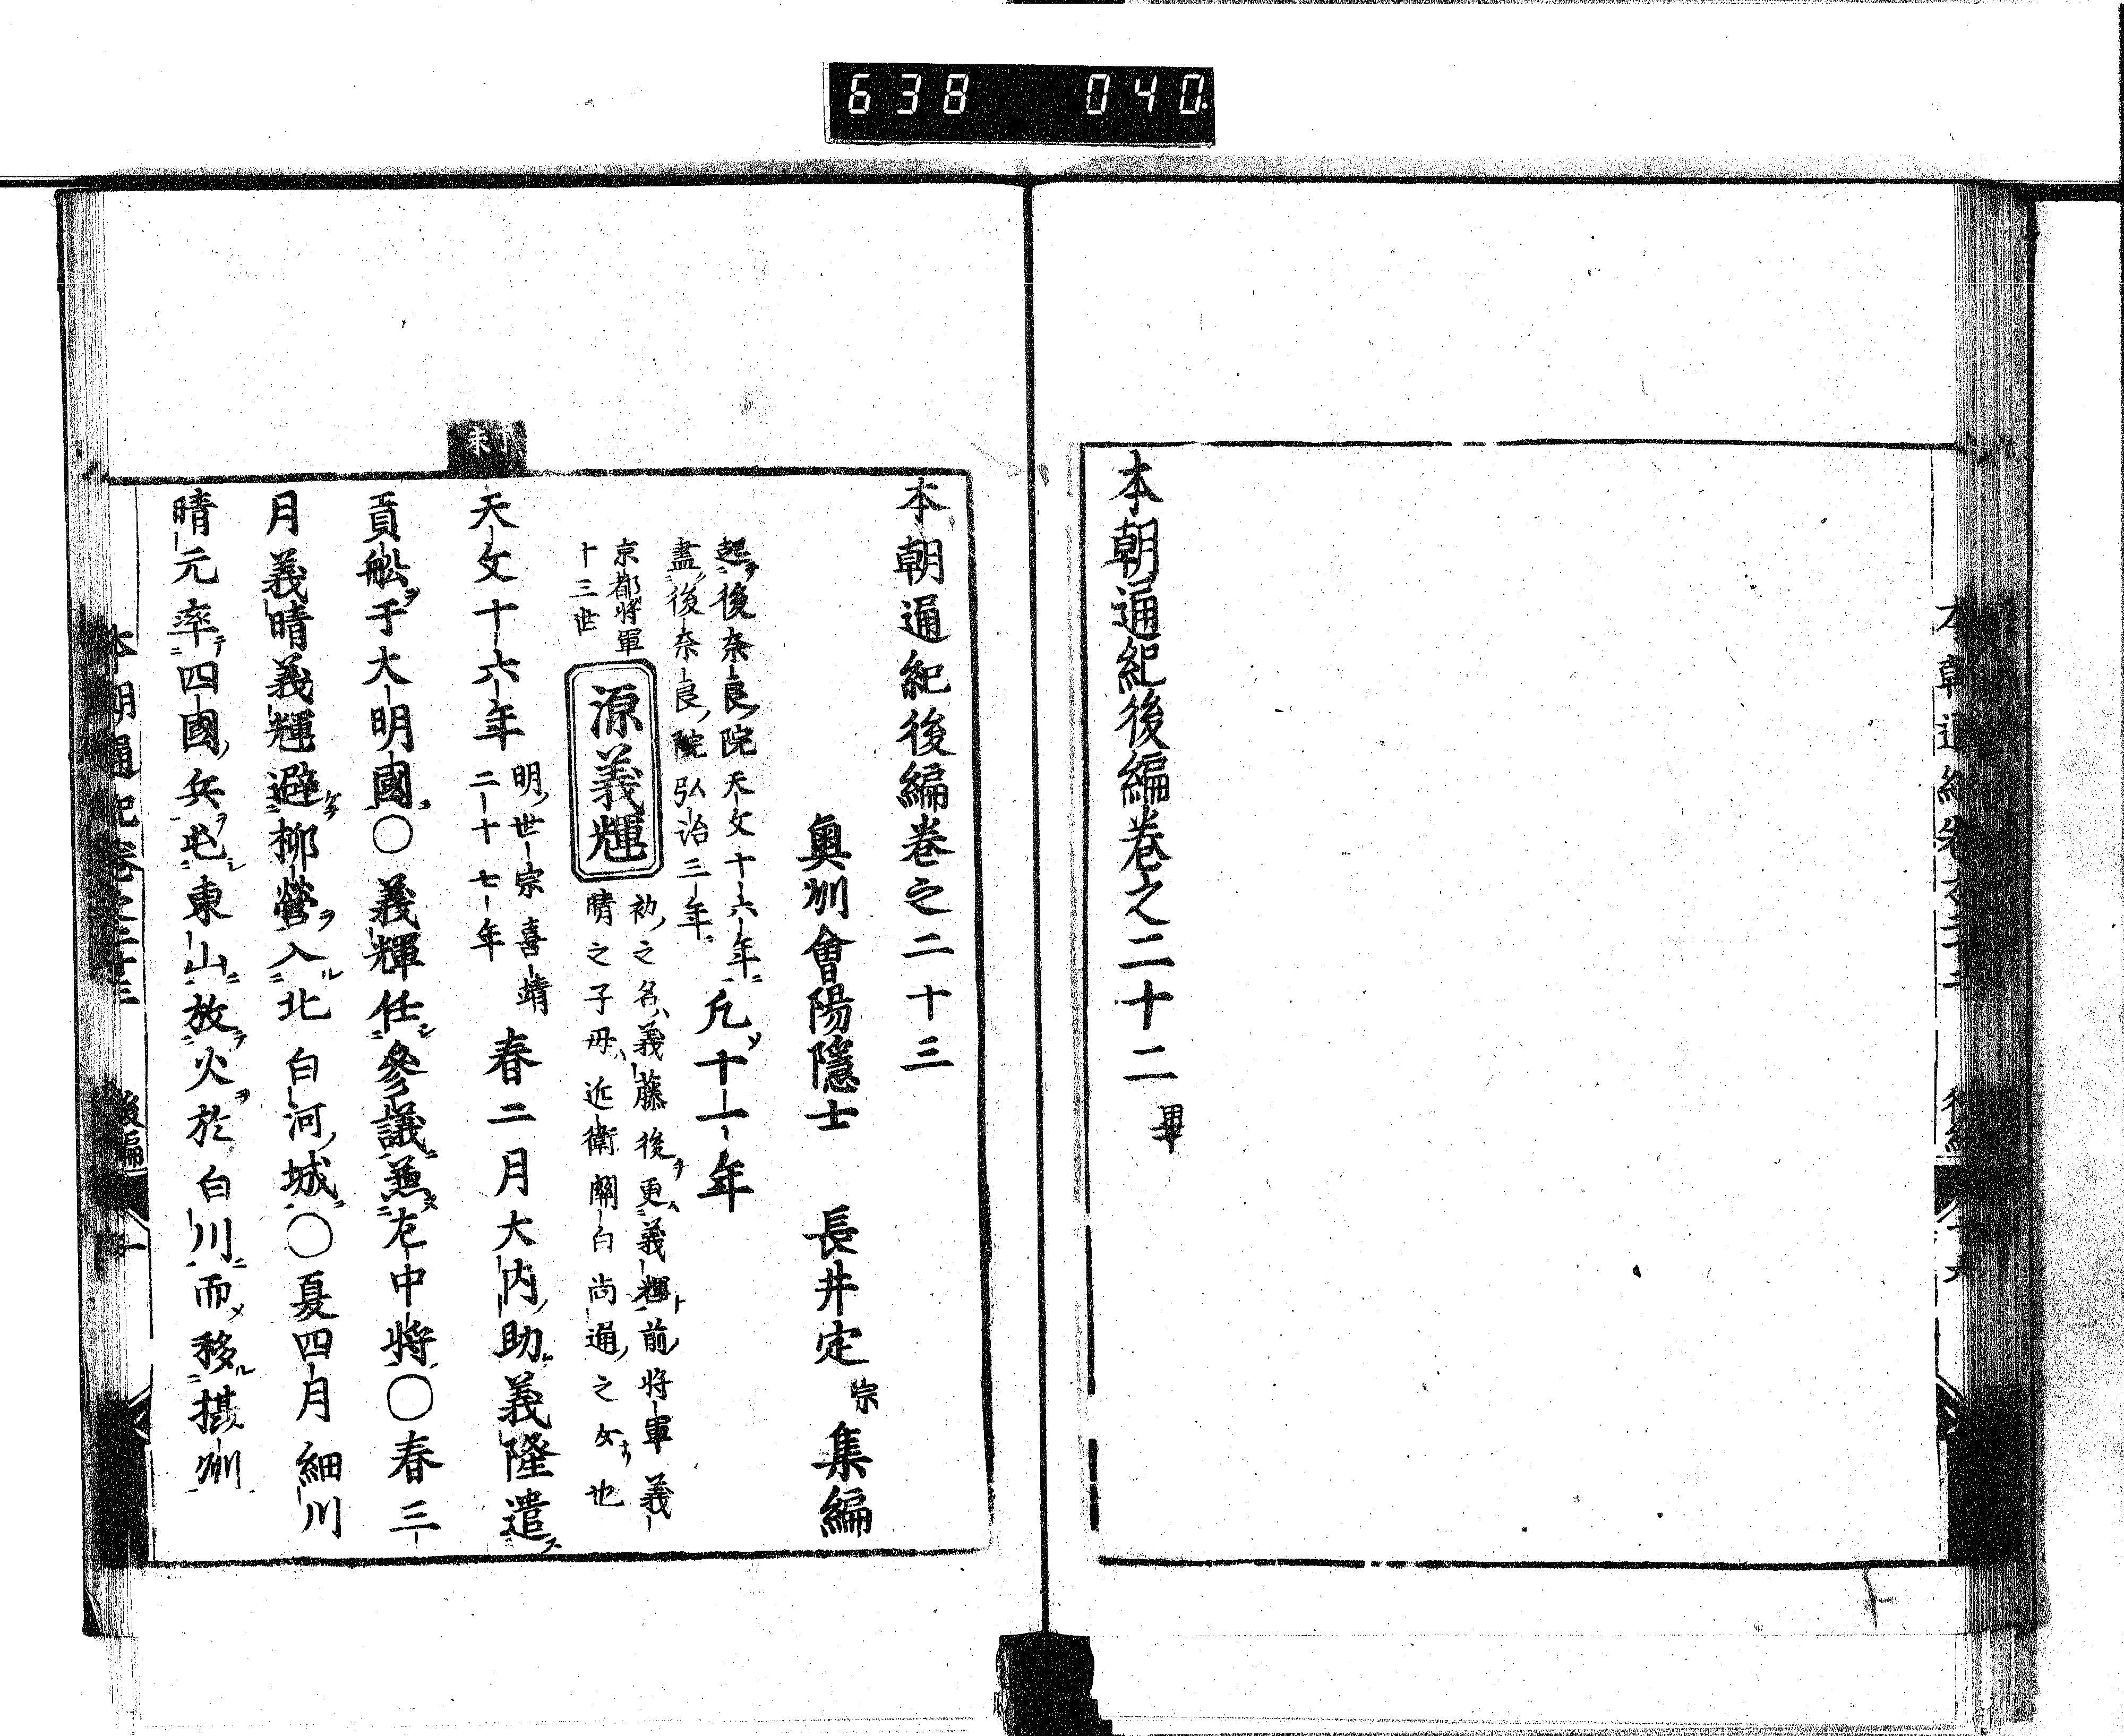 638 040
本朝通紀後編巻之二十二 畢
本朝通紀後編巻之二十三
奥州會陽隱士 長井定宗 集編
起後奈良院天文十六年
盡後奈良院弘治三年
凡十一年
京都將軍
十三世
源義輝
初之名義藤後更義輝前将軍義
晴之子毋近衛關白尚通之女也
丁未
天文十六年
明世宗喜靖
二十七年
春二月大内助義隆遣
貢舩于大明國〇義輝任參議兼左中將〇春三
月義晴義輝避柳營入北白河城〇夏四月細川
晴元率四國兵屯東山放火於白川而移摂州
本朝通紀巻之二十三 後編 一